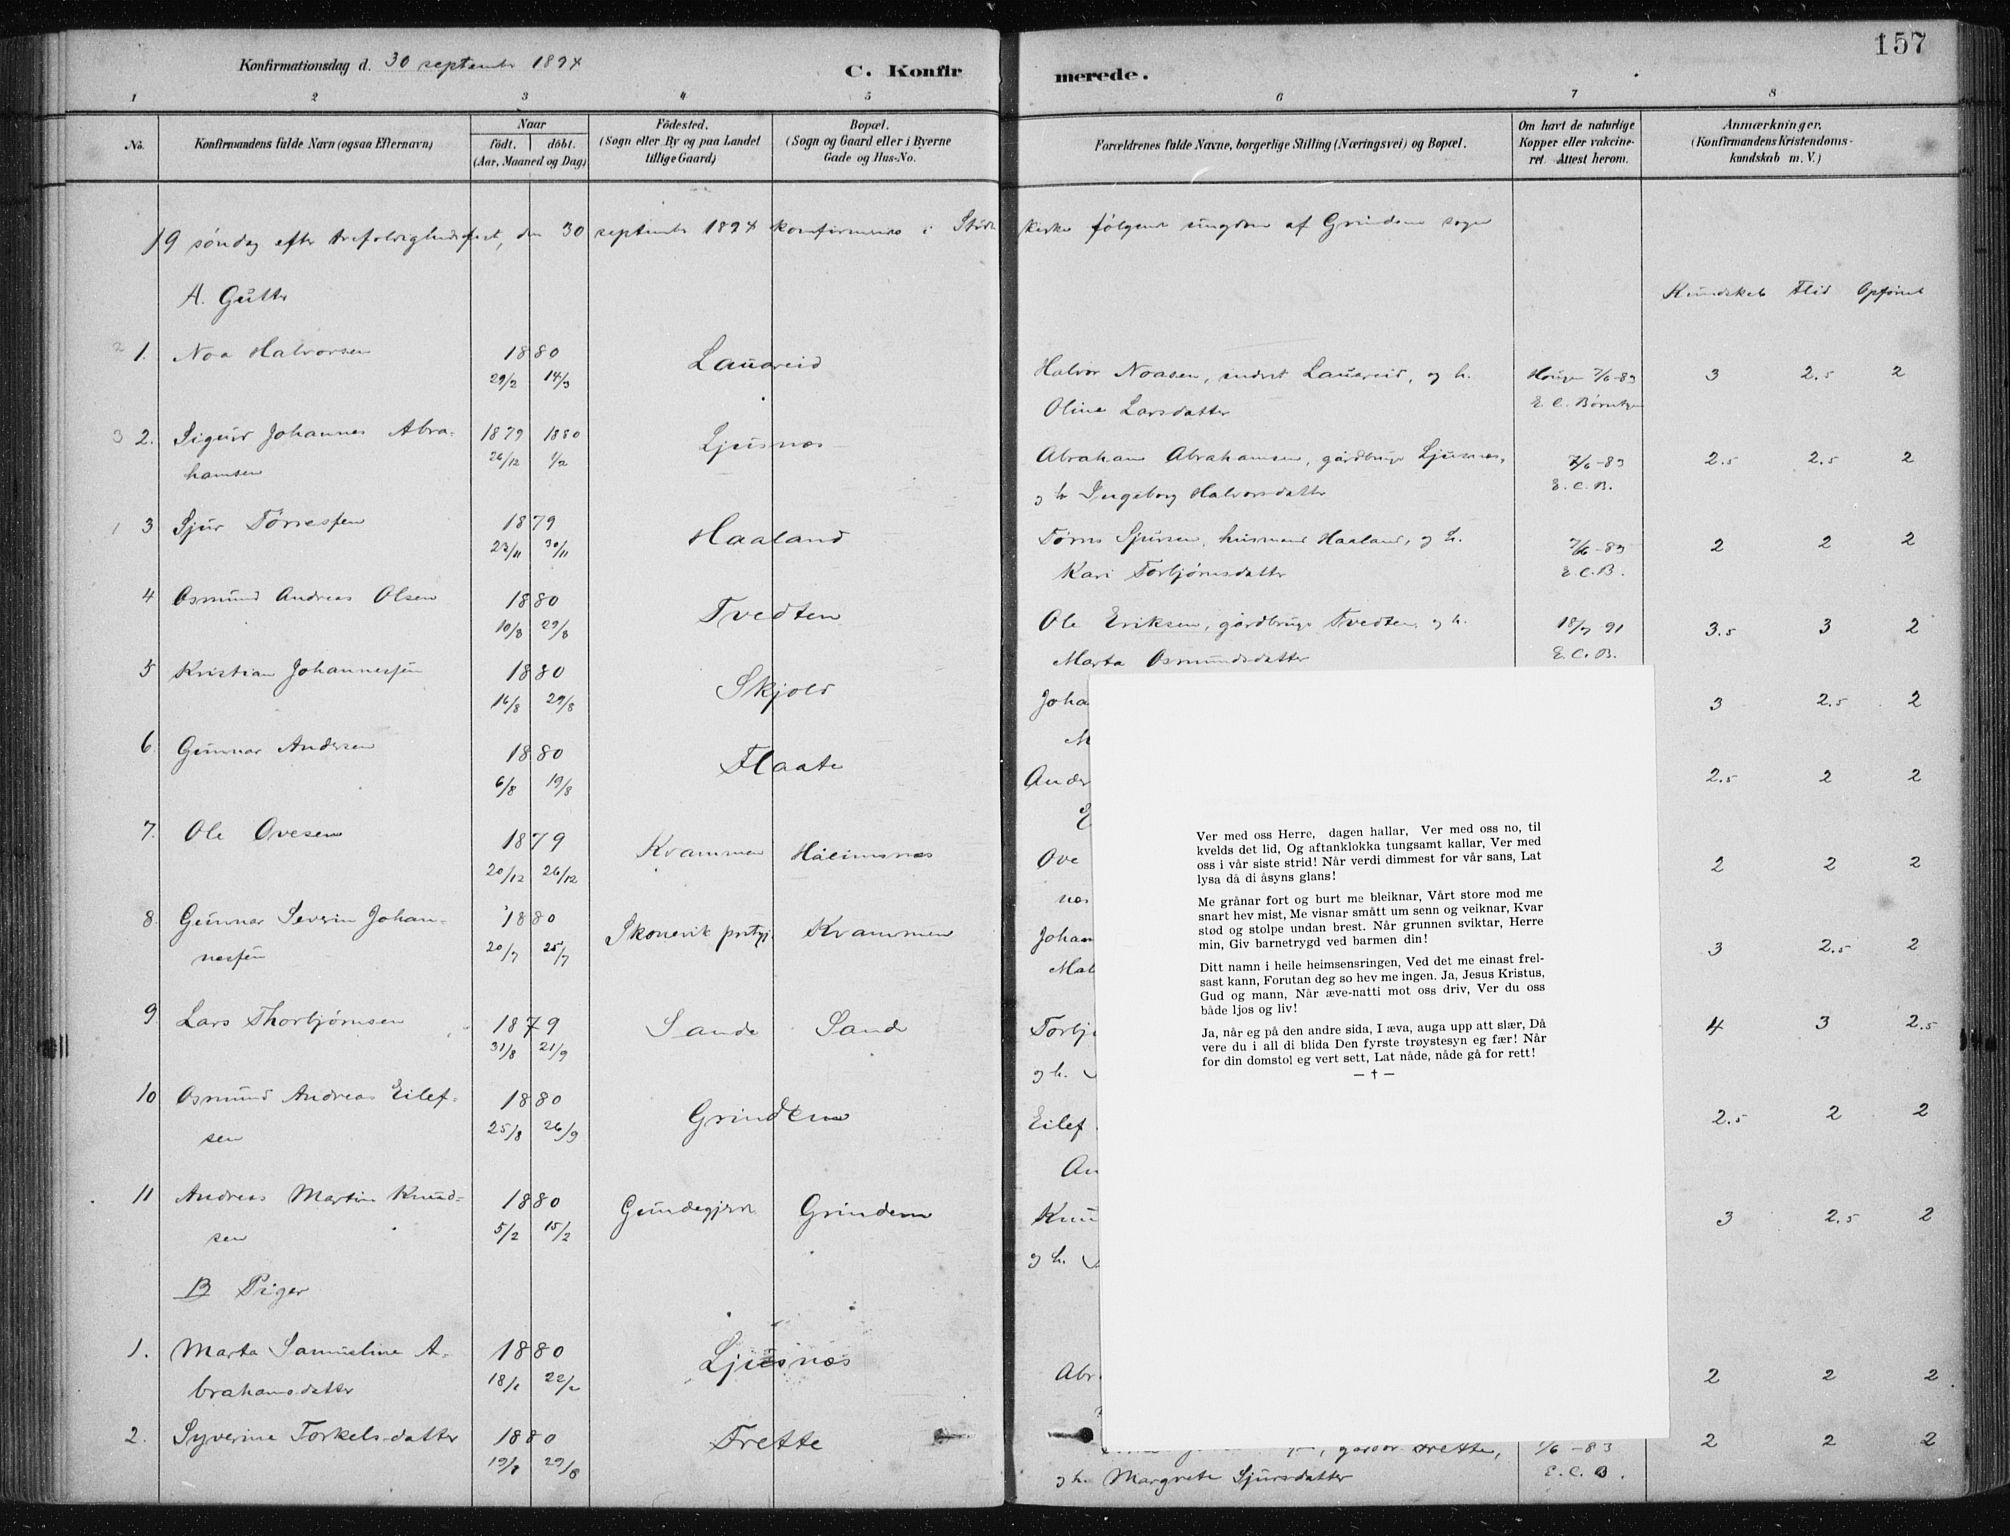 157
Konfirmationsdag d. 30 september 1894
C. Konfir merede.
1 2 3 4 5 6 7 8
No.
Konfirmandens fulde Navn (ogsaa Efternavn)
Naar
födt. döbt.
(Aar, Maaned og Dag)
Födested.
(Sogn eller By og paa Landet
tillige Gaard)
Bopæl.
(Sogn og Gaard eller i Byerne
Gade og Hus-No.
Forældrenes fulde Navne, borgerlige Stilling (Næringsvei) og Bopæl.
Om havt de naturlige
Kopper eller vakcine-
ret Attest herom.
Anmærkninger.
(Konfirmandens Kristendoms-
kundskab m. V.)
19 søndag efter trefoldighedsfest, den 30 september 1894 konfirmeres i
kirke følgende ungdom af Grindem sogn
A. Gutter
Kundskab Flid Opførsel
2 1. Noa Halvorsen 1880 Lauareid
29/2 14/3
Halvor Noasen, Lauareid, og h. 7/6-83 3 2.5 2
Oline Larsdatter
3 2. Sigurd Johannes Abra- 1879 1880 Ljusnæs
hamsen 26/12 1/2
Abraham Abrahamsen, gårdbruger Ljusnæs, 7/6-83 2.5 2.5 2
og h Ingeborg Halvorsdatter E. C. B.
1 3 Sjur Tørresen 1879 Haaland
23/11 30/11
Tørres Sjursen, husmand Haaland, og h. 7/6-83 2 2 2
Kari Torbjørnsdatter E. C. B.
4 Osmund Andreas Olsen 1880 Tvedten
10/8 29/8
Ole Eriksen, gårdbruger Tvedten, og h. 18/9 91 3.5 3 2
Marta Osmundsdatter E. C. B.
5 Kristian Johannessen 1880 Skjold
16/8 29/8
Joha 3 2.5 2
M
6. Gunnar Andersen 1880 Flaate
6/8 19/8
Ander 2.5 2 2
E
7. Ole Ovesen 1879 Kvammen
20/12 26/12
Ove 2 2 2
næs
8. Gunnar Severin Johan- 1880 Skonevik Kvammen
nessen 20/7 25/7
Johan 3 2.5 2
Mal
9 Lars Thorbjørnsen 1879 Sande Sande
31/8 21/9
Torbj 4 3 2.5
og h.
10 Osmund Andreas Eilef- 1880 Grindem
sen 25/8 26/9
Eilef 2.5 2 2
An
11 Andreas Martin Knud- 1880 Grindem
sen 5/2 15/2
Knu 3 2.5 2
og h.
B Piger
1. Marta Samueline A- 1880 Ljusnæs
brahamsdatter 22/2
Abr 2 2 2
2. Syverine Torkelsdatter 1880 Frette
29/8
Frette, 7/6-83 2 2 2
og h. Margrete Sjursdatter E. C. B.
Ver med oss Herre, dagen hallar, Ver med oss no, til
kvelds det lid, Og aftanklokka tungsamt kallar, Ver med
oss i vår siste strid! Når verdi dimmest for vår sans, Lat
lysa då di åsyns glans!
Me grånar fort og burt me bleiknar, Vårt store mod me
snart hev mist, Me visnar smått um senn og veiknar, Kvar
stød og stolpe undan brest. Når grunnen sviktar, Herre
min, Giv barnetrygd ved barmen din!
Ditt namn i heile heimsensringen, Ved det me einast frel-
sast kann, Forutan deg so hev me ingen. Ja, Jesus Kristus,
Gud og mann, Når æve-natti mot oss driv, Ver du oss
både ljos og liv!
Ja, når eg på den andre sida, I æva, auga upp att slær, Då
vere du i all di blida Den fyrste trøystesyn eg fær! Når
for din domstol eg vert sett, Lat nåde, nåde gå for rett!
— † —